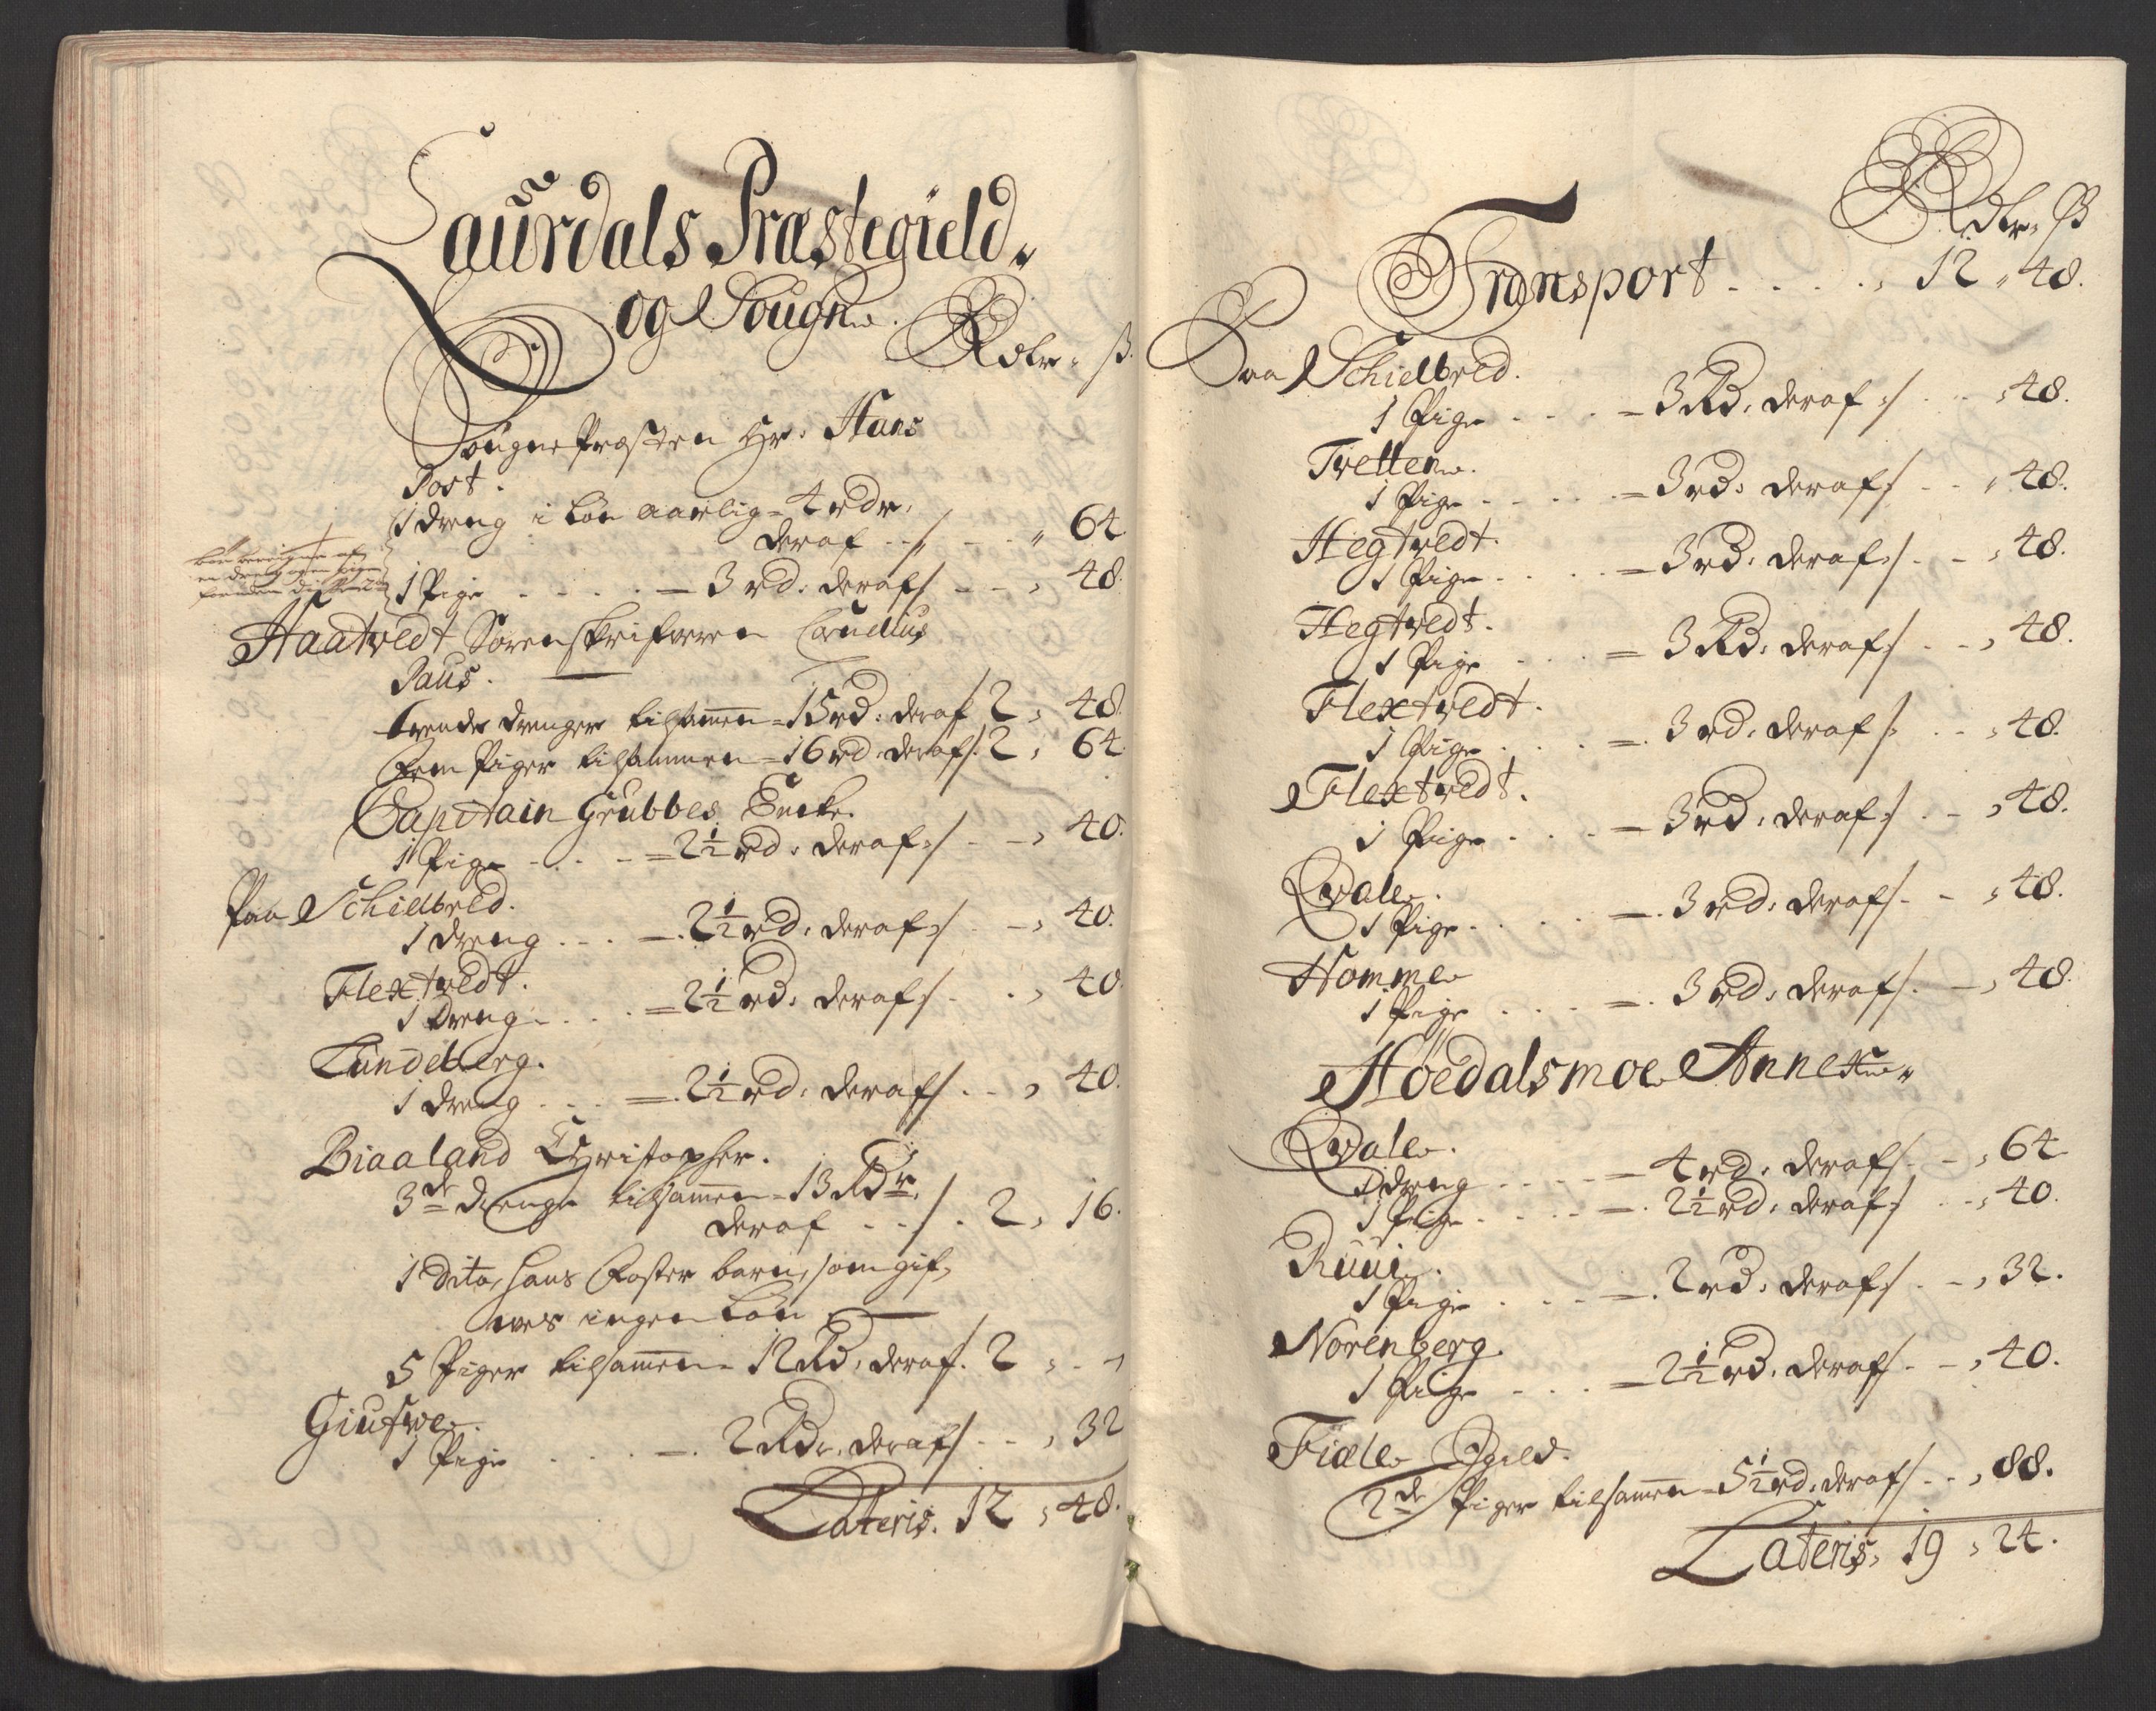 Laurdals Præstegield
og Sougn.
Rdlr. ß.
Sougne Præsten Hr. Hans
Post.
1 dreng i Løn aarlig = 4 rdr.
deraf - - / - - " 64
1 Pige - - - - = 3 rd: deraf / - - , 48.
Haatvedt Sorenskrifveren Cornelius
Paus.
trende drenger tilsammen = 15 rd: deraf 2 , 48.
Fem Piger tilsammen = 16 rd: deraf /. 2 , 64.
Capitain Grubbes Encke.
1 Pige - - - = 2½ rd: deraf / - - , 40.
Paa Schielbred.
1 dreng - - - = 2½ rd: deraf / - , 40.
Flextvedt.
1 dreng - - - = 2½ rd: deraf / - , 40.
Lundeberg.
1 dreng - - - = 2½ rd: deraf / - - , 40.
Biaaland Christopher.
3de drenge tilsammen = 13 Rdr.
deraf - - / - 2 , 16.
1 dito, hans Foster barn, som gif-
wes ingen Løn
5 Piger tilsammen = 12 Rd: deraf. 2 , - -
Giufwe.
1 Pige - - - - = 2 Rdr. deraf / - - , 32
Lateris. 12 , 48.
Rdlr. ß
Transport - - - - , 12 , 48.
Paa Schielbred.
1 Pige - - - = 3 Rd: deraf / - - , 48.
Tvetten.
1 Pige - - - = 3 rd: deraf / - - , 48.
Hegtvedt.
1 Pige - - - = 3 rd: deraf / - - , 48.
Hegtvedt.
1 Pige - - - = 3 Rd: deraf / - - , 48.
Flextvedt.
1 Pige - - - = 3 rd: deraf / - - , 48.
Flextvedt.
1 Pige - - - = 3 rd: deraf / - - , 48.
Qvale.
1 Pige - - - = 3 rd: deraf / - - , 48.
Homme
1 Pige - - - = 3 rd: deraf / - - , 48.
Höedalsmoe Annex
Qvale.
1 dreng - - - = 4 rd: deraf / - - , 64
1 Pige - - - = 2½ rd: deraf / - - , 40.
Ruui.
1 Pige - - - = 2 rd: deraf / - - , 32.
Norenberg.
1 Pige - - - = 2½ rd: deraf / - - , 40.
Fiæle
2de Piger tilsammen = 5½ rd: deraf / - - , 88.
Lateris, 19 , 24.